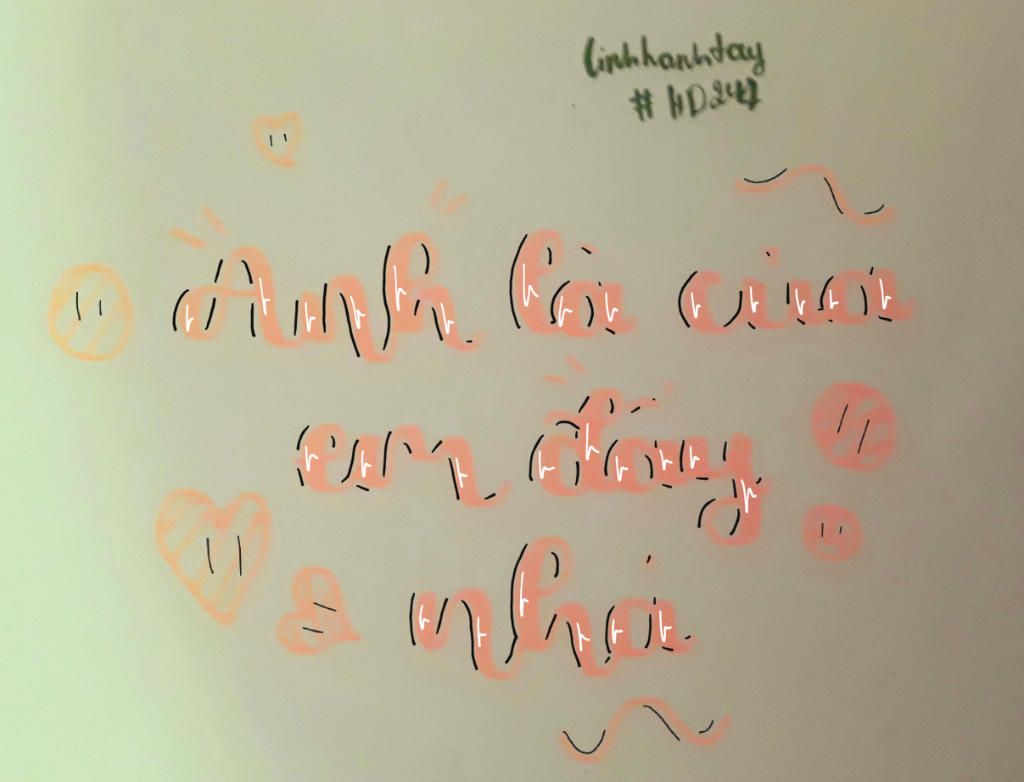 linhhanhtay
#HD247
Anh là của
em đấy
nhá